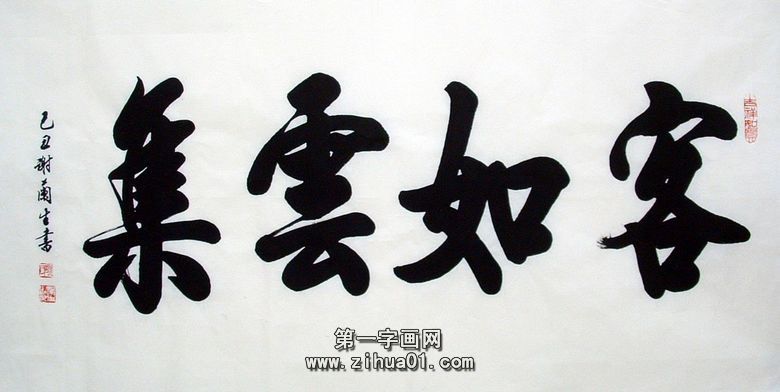 客如雲集
己丑謝蘭生書
吉祥如意
第一字画网
www.zihua01.com